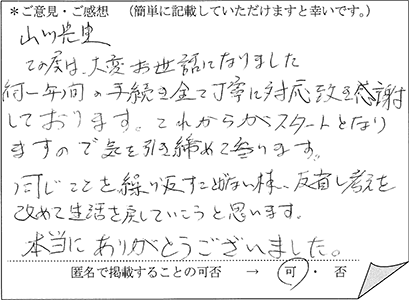 *ご意見・ご感想 (簡単に記載していただけますと幸いです。)
この度は、大変お世話になりました
約一年間の手続き全て丁寧に対応致き感謝
しております。これからがスタートとなり
ますので気を引き締めて参ります。
同じことを繰り返すことがない様、反省し考えを
改めて生活を戻していこうと思います。
本当にありがとうございました。
匿名で掲載することの可否 → 可・否